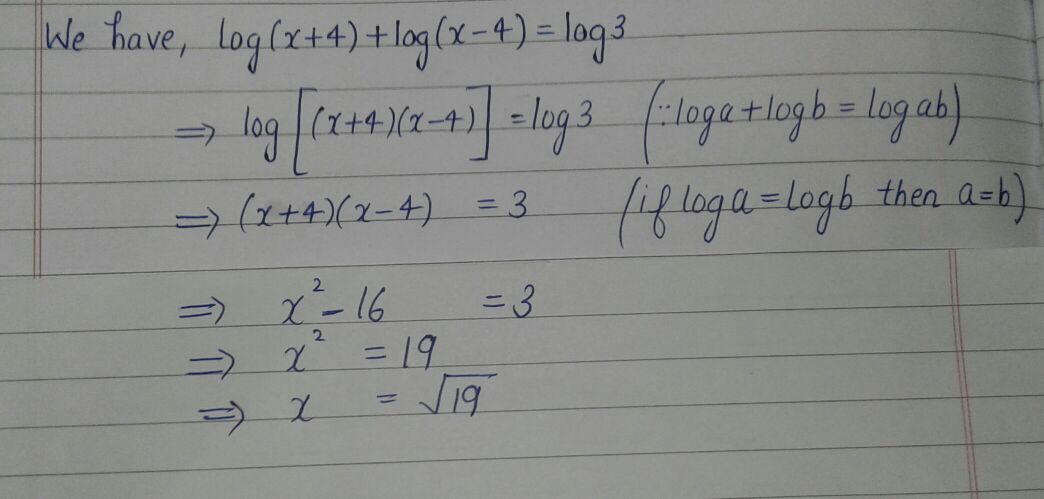 We have, log(x+4)+log(x-4)=log3
⇒ log[(x+4)(x-4)] = log3 (∵loga+logb = logab)
⇒ (x+4)(x-4) = 3 (if loga=logb then a=b)
⇒ x²-16 = 3
⇒ x² = 19
⇒ x = √19